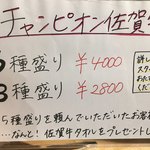 チャンピオン佐賀
5種盛り ¥4000
3種盛り ¥2800
5種盛りを頼んでいただいたお客
...なんと! 佐賀牛タオルをプレゼントし